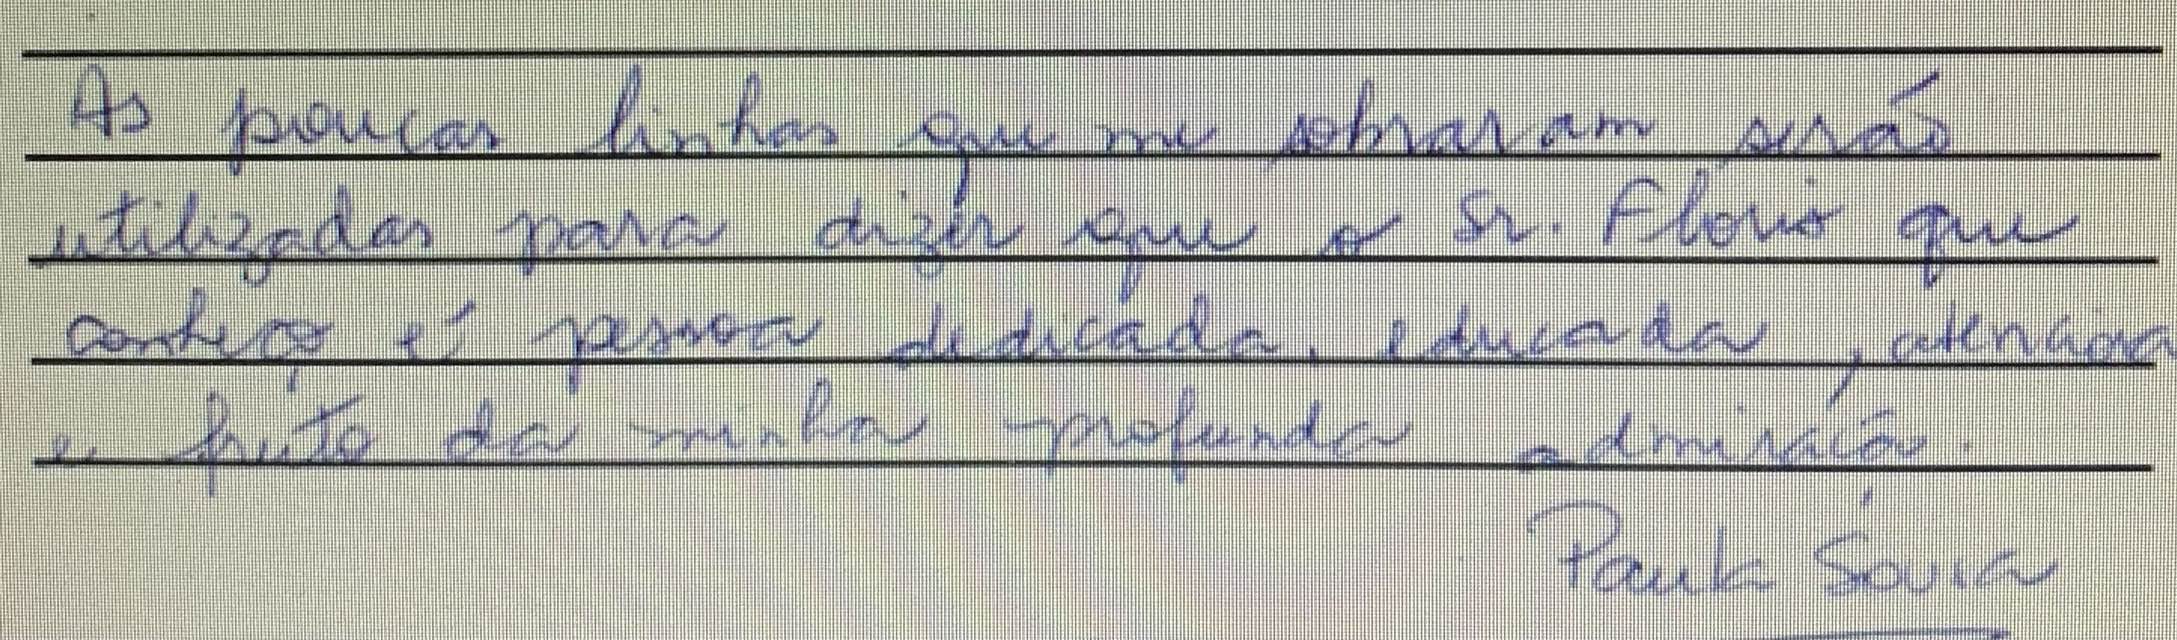 As poucas linhas que me sobraram serão
utilizadas para dizer que o Sr. Flovio que
conheço é pessoa dedicada, educada, atenciosa
e fruto da minha profunda admiração.
Paula Sousa